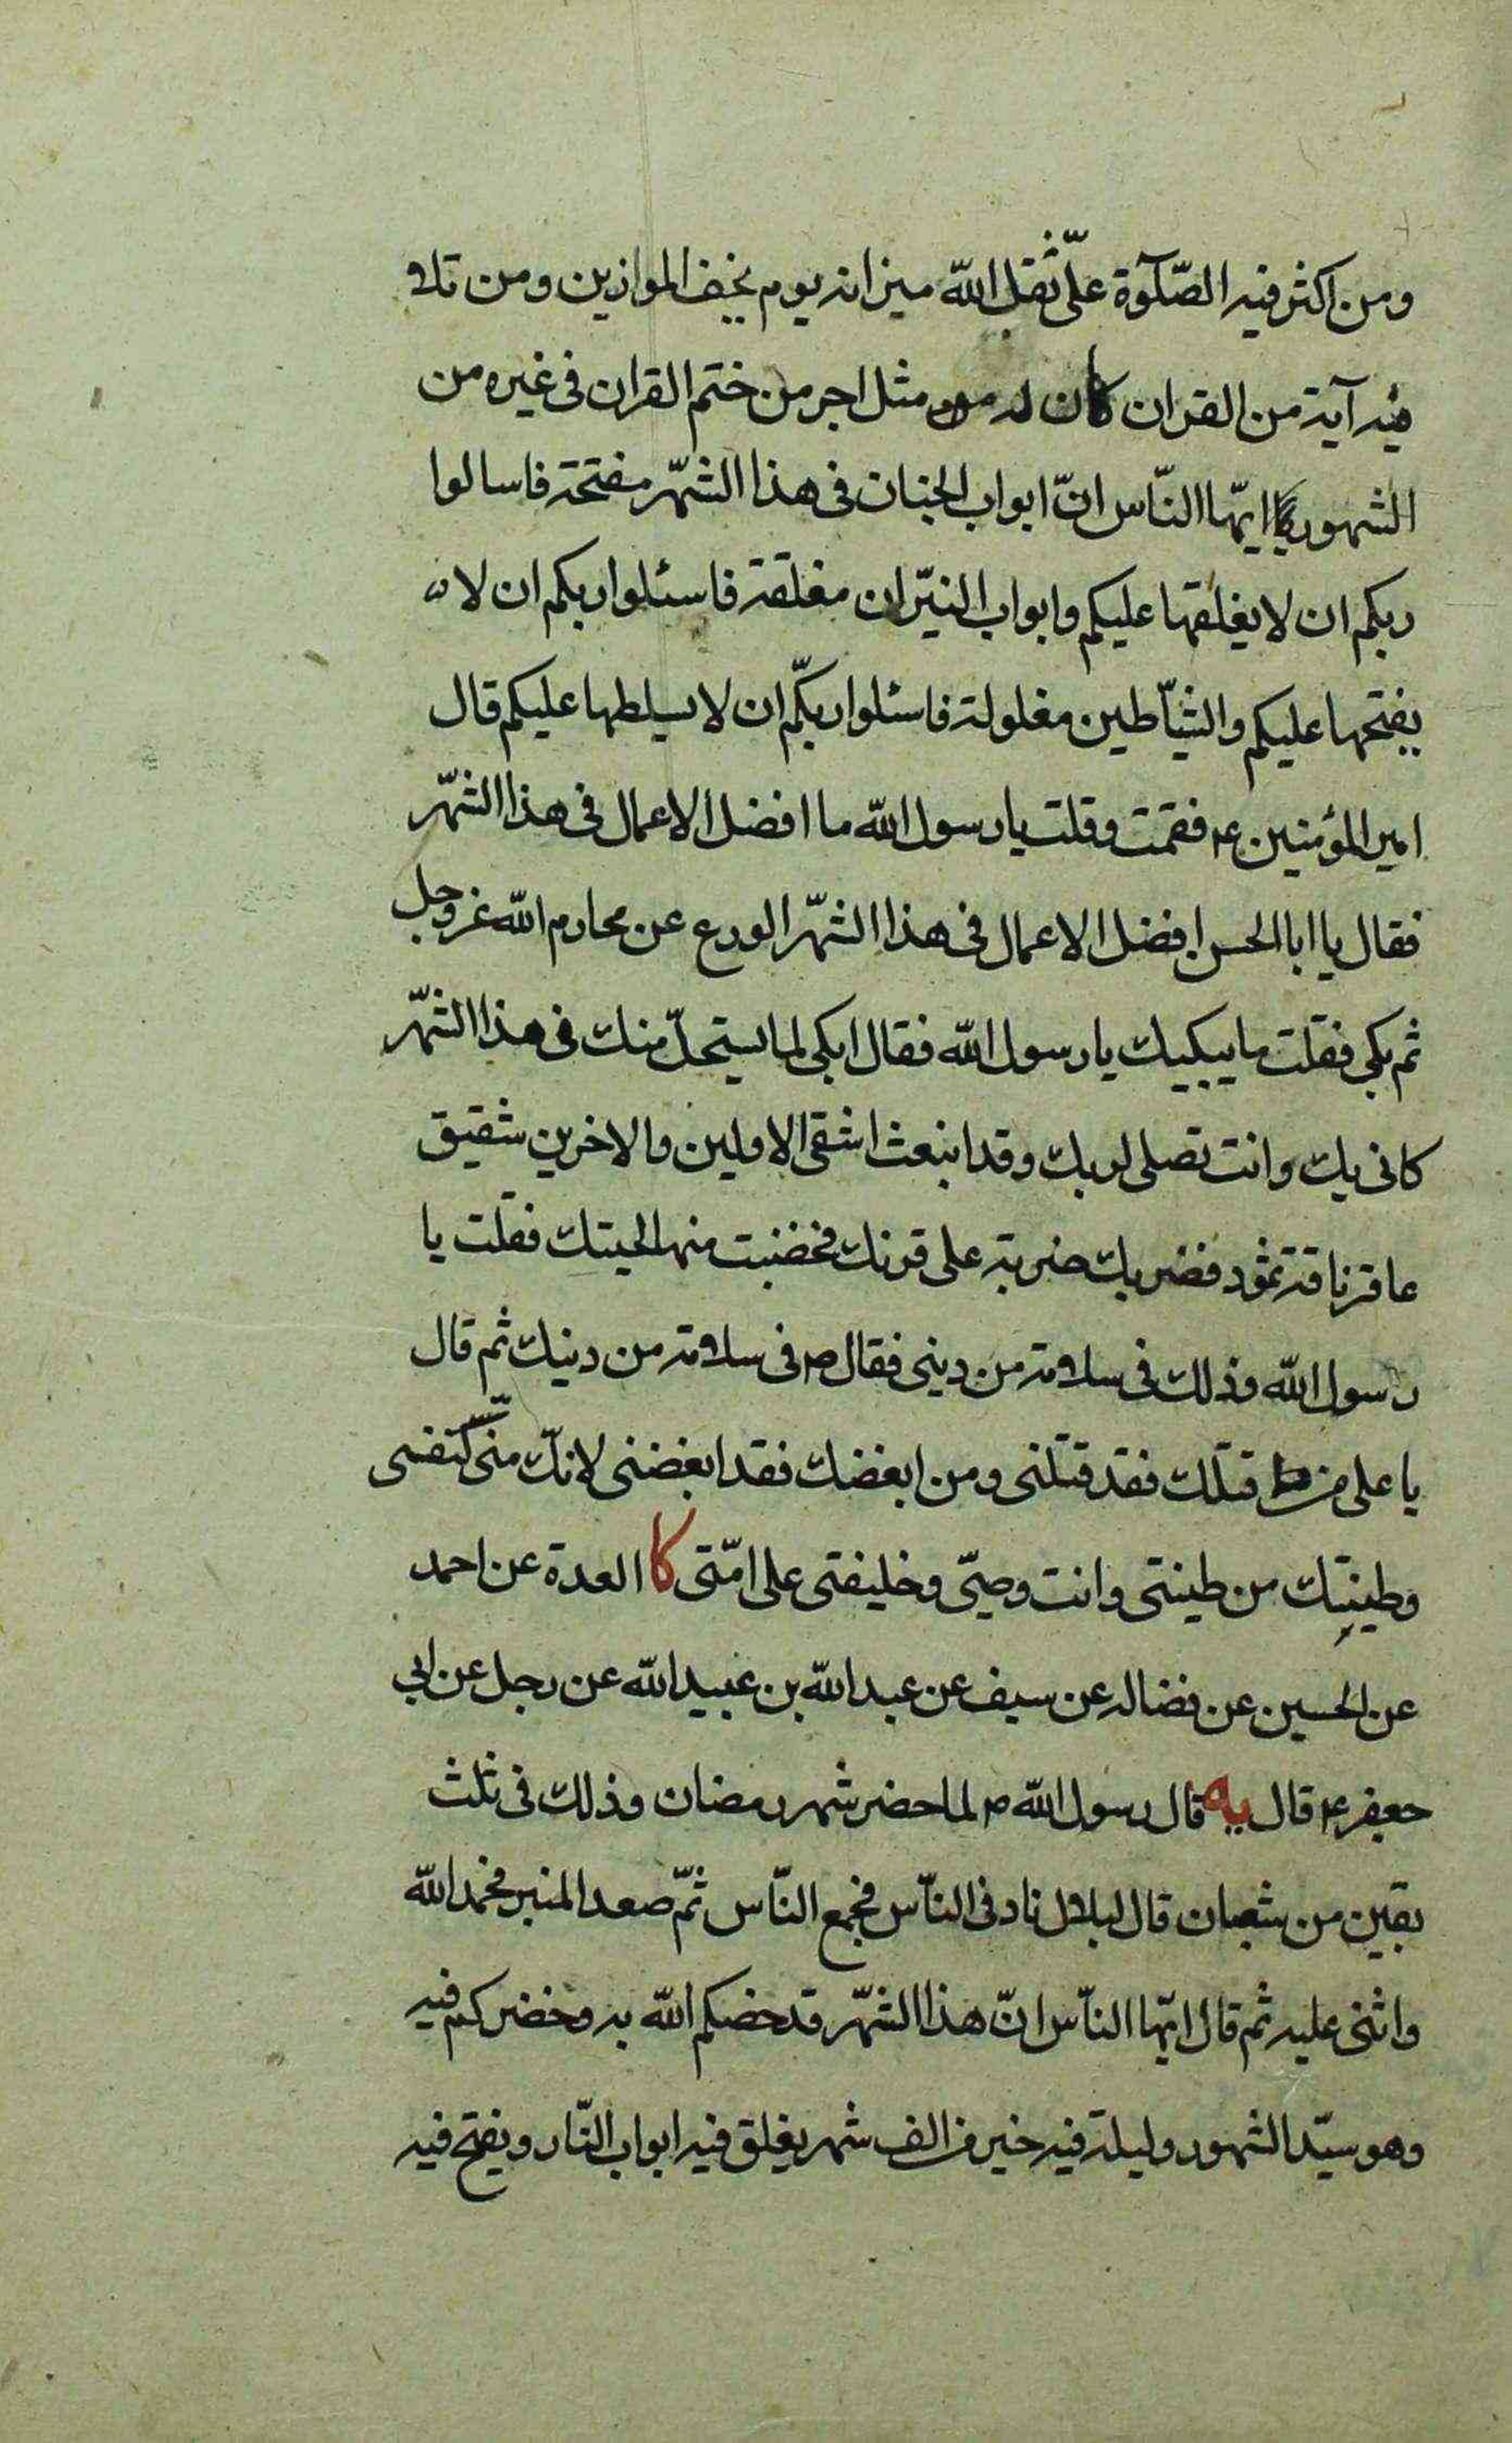 ومن اكثر فيه الصّلوٓة علىّ ثقل الله ميزانه يوم يخف الموازين ومن تلا
فيه آية من القران كان له مثل اجر من ختم القران فى غيره من
الشهور يا ايّها النّاس انّ ابواب الجنان فى هذا الشّهر مفتحة فاسالوا
ربكم ان لا يغلقها عليكم وابواب النيّران مغلقة فاسئلوا ربكم ان لا
يفتحها عليكم والشيّاطين مغلولة فاسئلوا ربكّم ان لا يسلطها عليكم قال
امير المؤمنين ع فقمت وقلت يا رسول الله ما افضل الاعمال فى هذا الشّهر
فقال يا ابا الحسن افضل الاعمال فى هذا الشّهر الورع عن محارم الله عز وجل
ثم بكى فقلت ما يبكيك يا رسول الله فقال ابكى لما يستحلّ منك فى هذا الشّهر
كانى بك وانت تصلى لربك وقد انبعث اشقى الاولين والاخرين شقيق
عاقر ناقة ثمود فضربك ضربة على قرنك فخضبت منها لحيتك فقلت يا
رسول الله وذلك فى سلامة من دينى فقال ص فى سلامة من دينك ثم قال
يا على من قتلك فقد قتلنى ومن ابغضك فقد ابغضنى لانكّ منّى كنفسى
وطينتك من طينتى وانت وصيّى وخليفتى على امّتى كا العدة عن احمد
عن الحسين عن فضاله عن سيف عن عبد الله بن عبيد الله عن رجل عن ابي
جعفر ع قال يه قال رسول الله ص لما حضر شهر رمضان وذلك فى ثلث
بقين من شعبان قال لبلال ناد فى النّاس فجمع النّاس ثمّ صعد المنبر فحمد الله
واثنى عليه ثم قال ايّها النّاس انّ هذا الشّهر قد خصكم الله به وحضركم فيه
وهو سيّد الشهور وليلة فيه خير من الف شهر يغلق فيه ابواب النّار ويفتح فيه